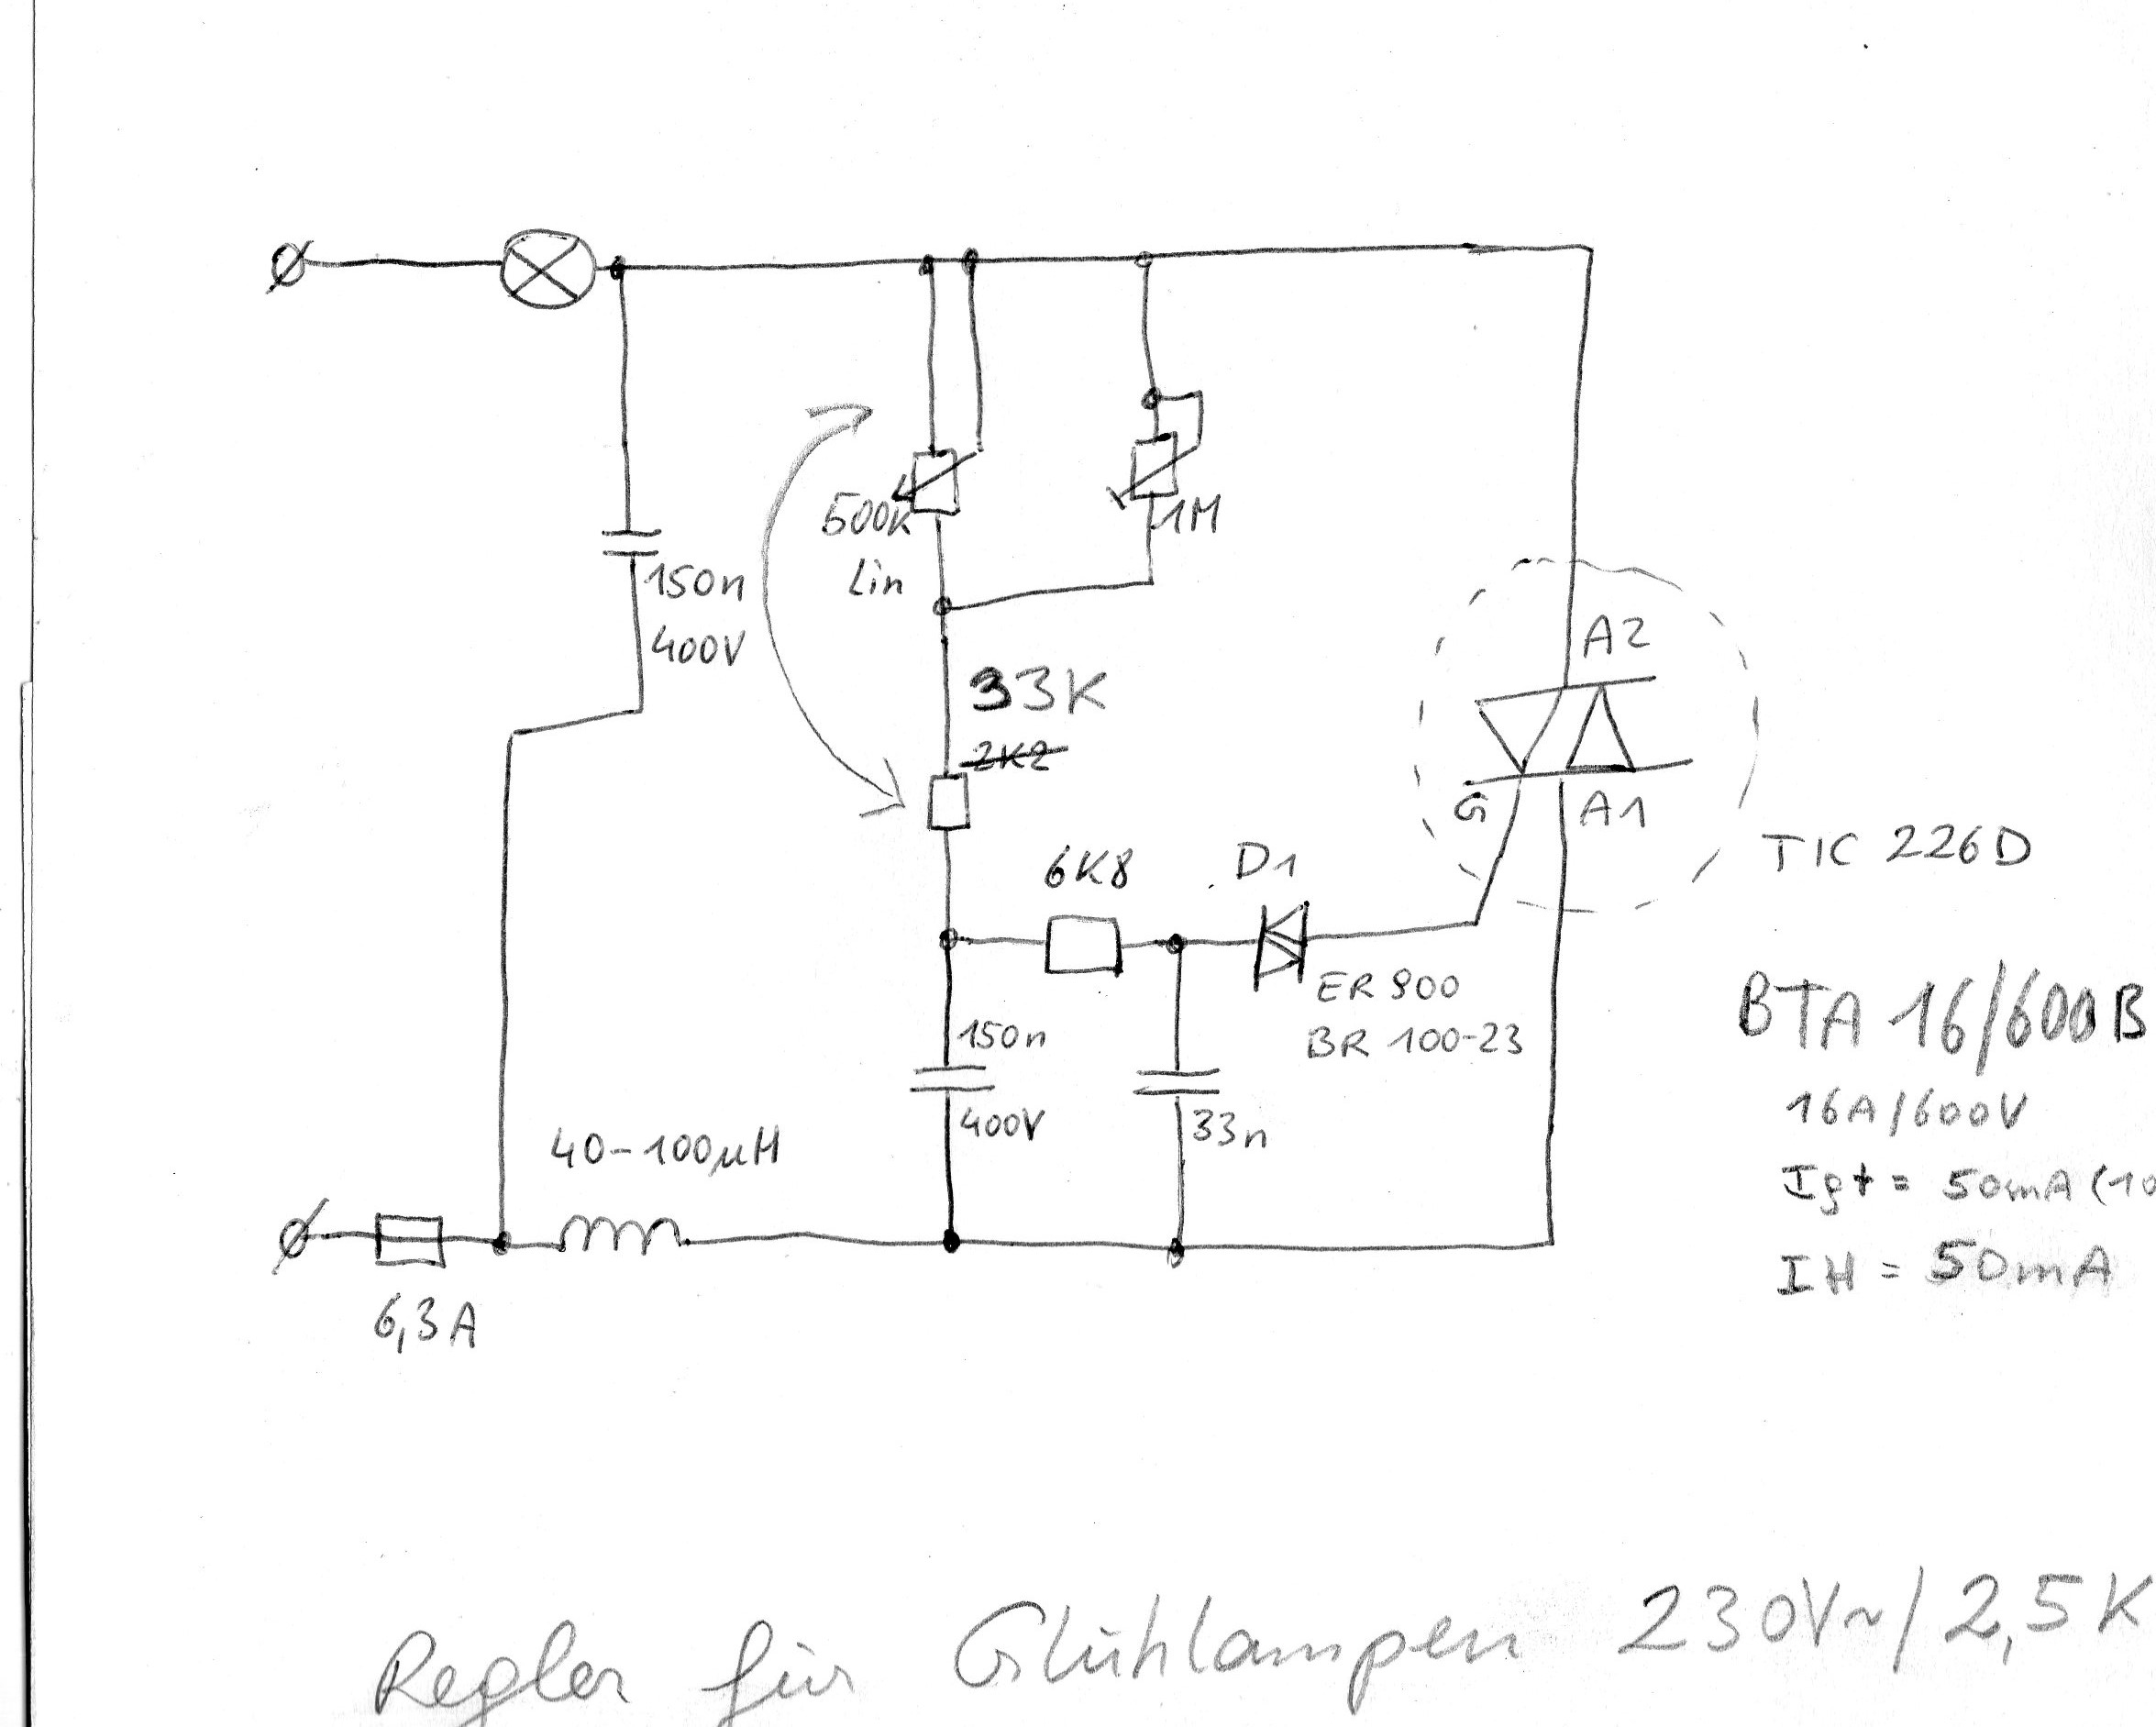 500K
Lin
1M
150n
400V
33K
2K2
A2
G
A1
TIC 226D
6K8
D1
ER 900
BR 100-23
BTA 16/600B
16A/600V
Igt = 50mA (10
IH = 50mA
150n
400V
33n
40-100µH
6,3A
Regler für Glühlampen 230V~/2,5K